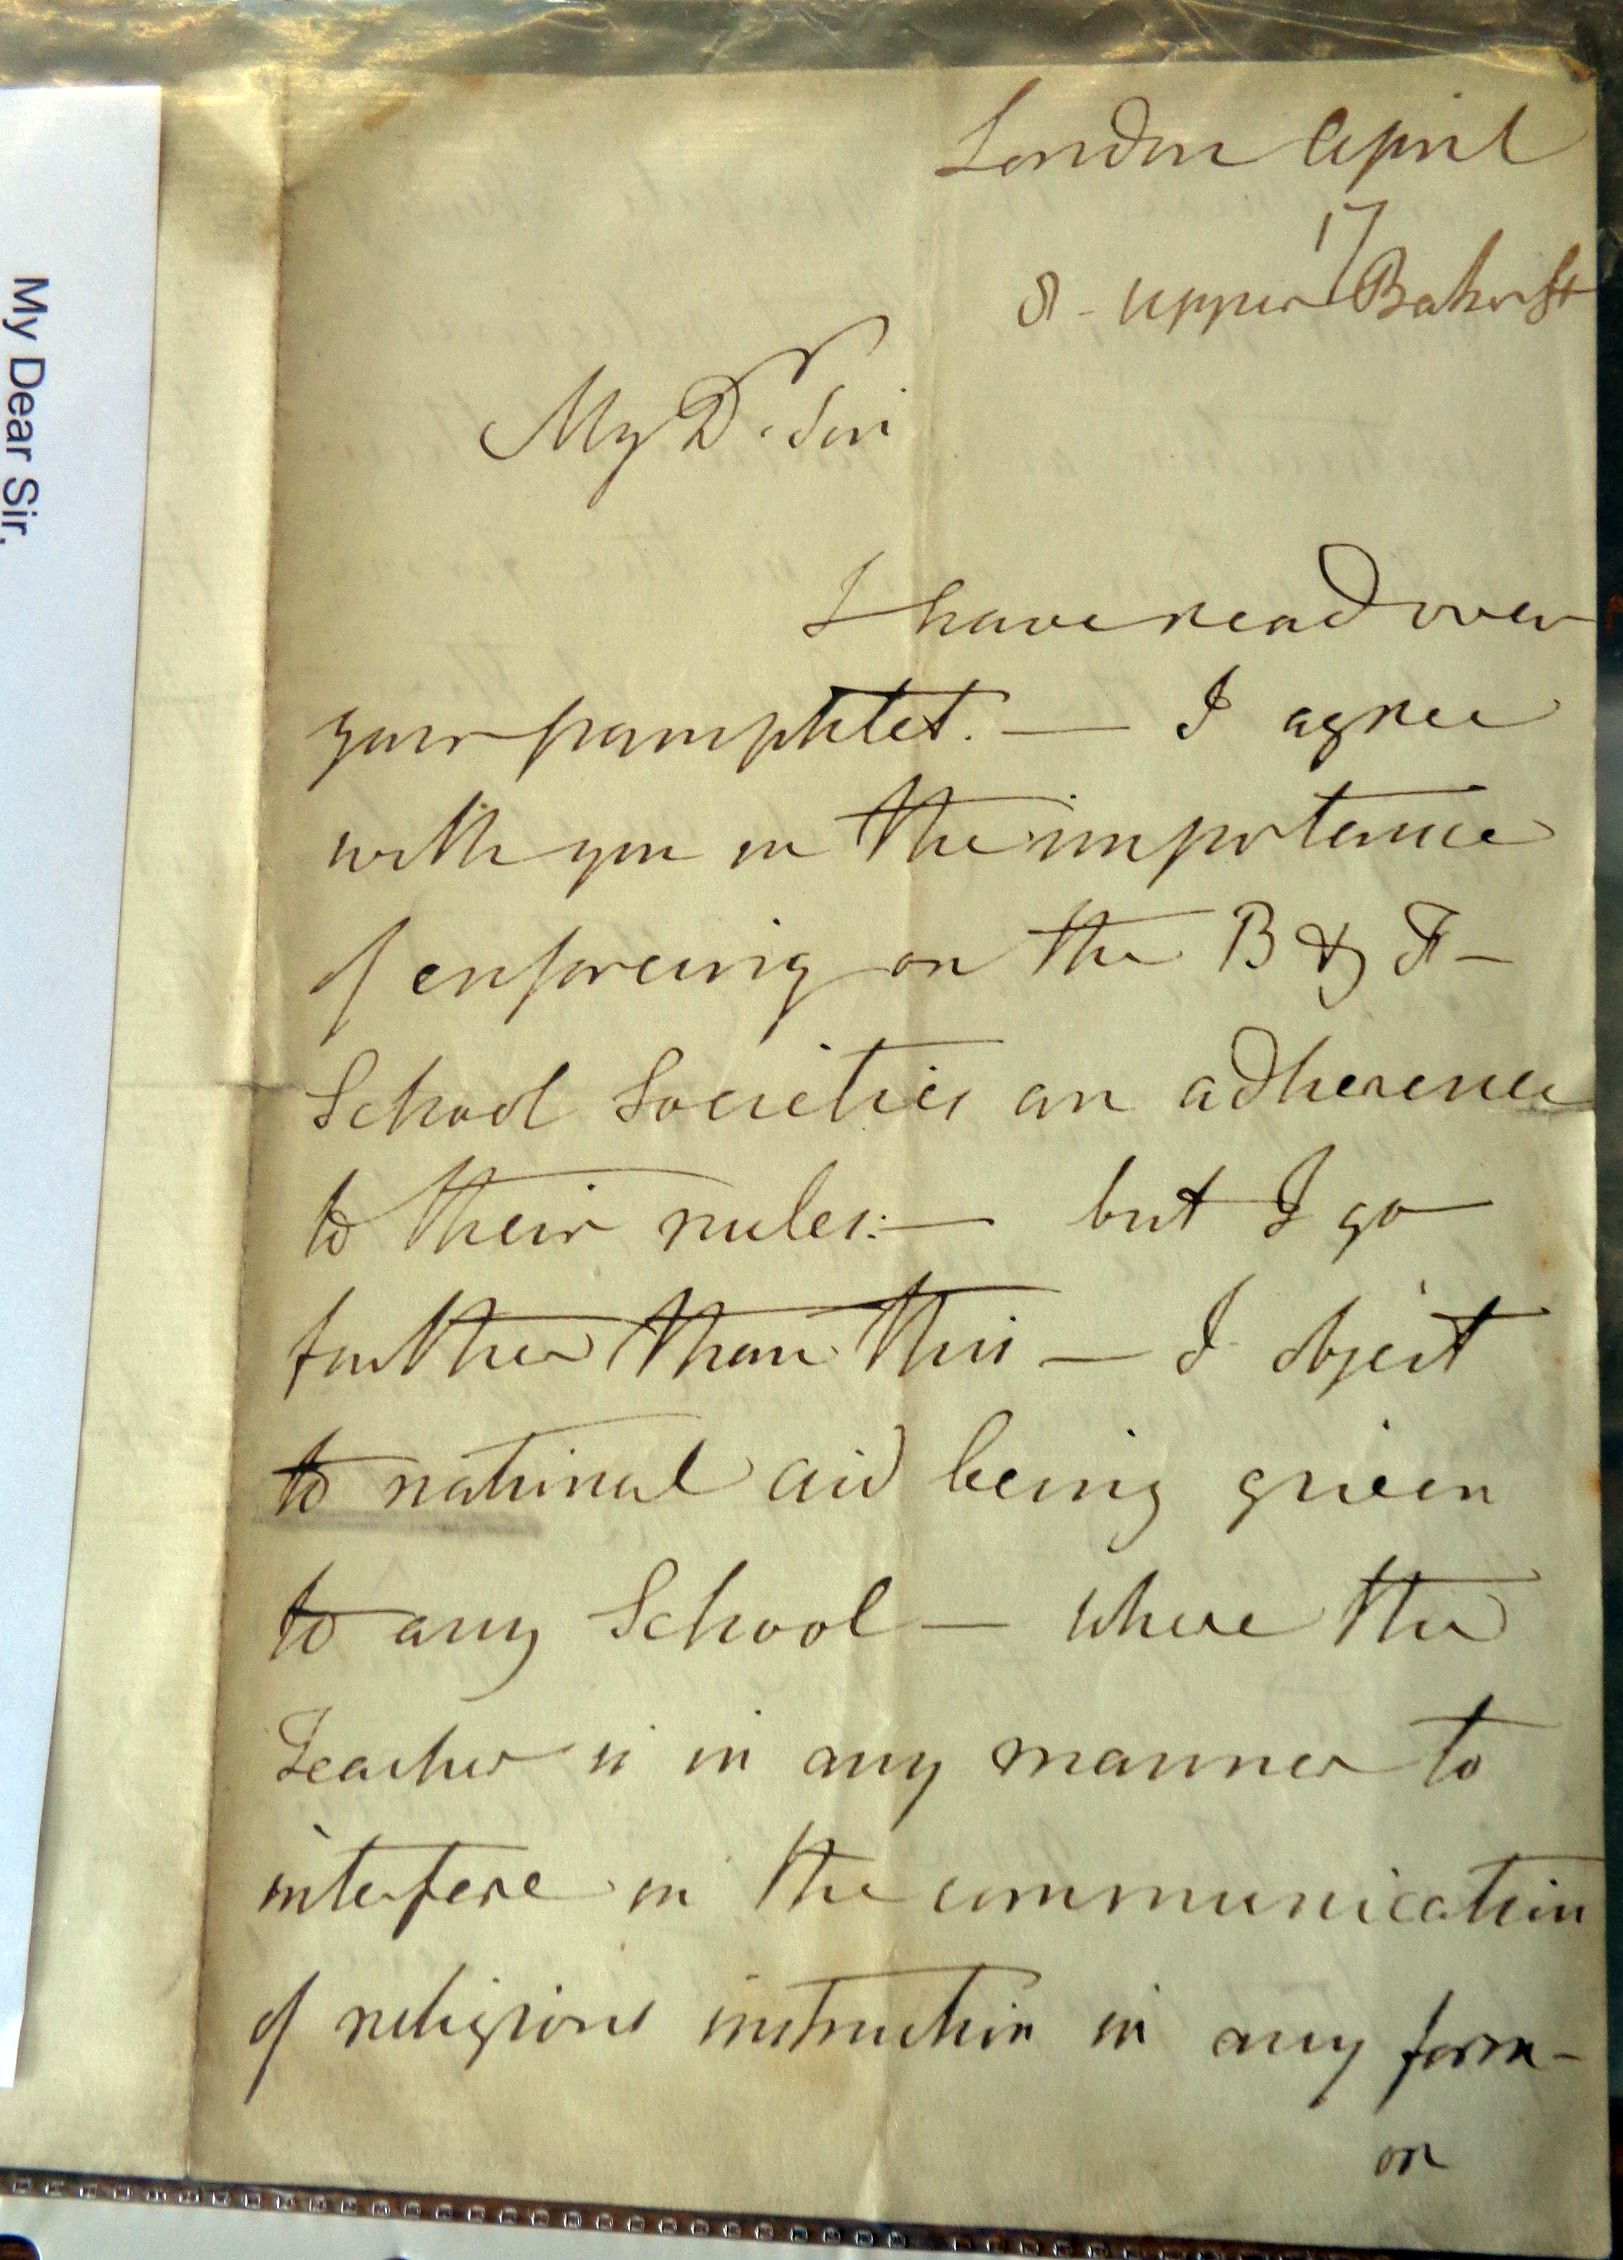 London April
17
8 - Upper Baker St
My Dr. Sir
I have read over
your pamphlet. — I agree
with you in the importance
of enforcing on the B & F -
School Societies an adherence
to their rules: — but I go
further than this — I object
to national aid being given
to any School — where the
Teacher is in any manner to
interfere in the communication
of religious instruction in any form -
or
My Dear Sir,